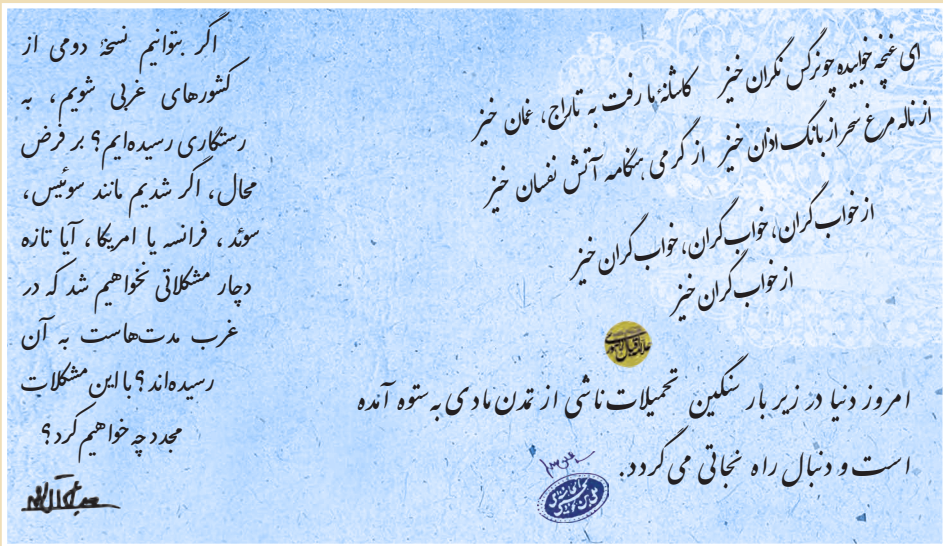 ای غنچه خوابیده چو نرگس نگران خیز کاشانهٔ ما رفت به تاراج، غمان خیز
از ناله مرغ سحر از بانگ اذان خیز از گرمی هنگامه آتش نفسان خیز
از خواب گران، خواب گران، خواب گران خیز
از خواب گران خیز
علامه اقبال لاهوری
امروز دنیا در زیر بار سنگین تحمیلات ناشی از تمدن مادی به ستوه آمده
است و دنبال راه نجاتی می گردد.
اگر بتوانیم نسخهٔ دومی از
کشورهای غربی شویم، به
رستگاری رسیده‌ایم؟ بر فرض
محال، اگر شدیم مانند سوئیس،
سوئد، فرانسه یا امریکا، آیا تازه
دچار مشکلاتی نخواهیم شد که در
غرب مدت‌هاست به آن
رسیده‌اند؟ با این مشکلات
مجدد چه خواهیم کرد؟